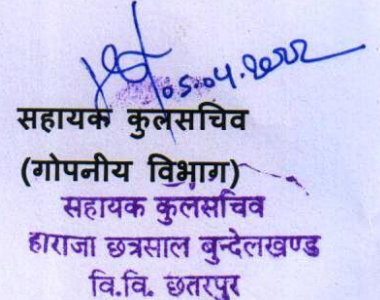 05.04.2022
सहायक कुलसचिव
(गोपनीय विभाग)
सहायक कुलसचिव
हाराजा छत्रसाल बुन्देलखण्ड
वि.वि. छतरपुर